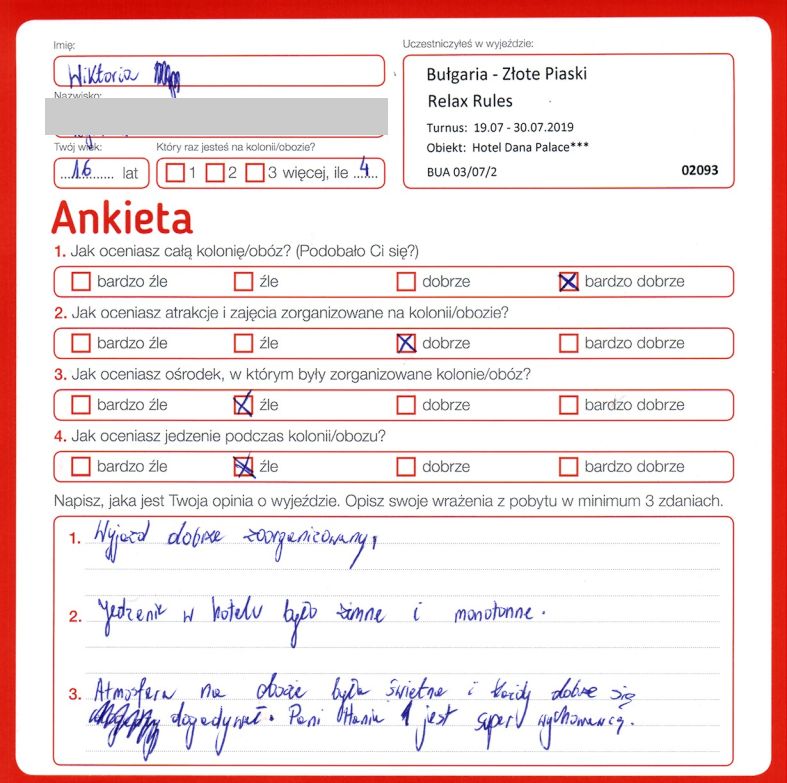 Imię:
Uczestniczyłeś w wyjeździe:
Wiktoria
Bułgaria - Złote Piaski
Nazwisko:
Relax Rules
Turnus: 19.07 - 30.07.2019
Twój wiek:
Który raz jesteś na kolonii/obozie?
Obiekt: Hotel Dana Palace***
....16........... lat
1 2 3 więcej, ile ..4....
BUA 03/07/2
02093
Ankieta
1. Jak oceniasz całą kolonię/obóz? (Podobało Ci się?)
bardzo źle źle dobrze bardzo dobrze
2. Jak oceniasz atrakcje i zajęcia zorganizowane na kolonii/obozie?
bardzo źle źle dobrze bardzo dobrze
3. Jak oceniasz ośrodek, w którym były zorganizowane kolonie/obóz?
bardzo źle źle dobrze bardzo dobrze
4. Jak oceniasz jedzenie podczas kolonii/obozu?
bardzo źle źle dobrze bardzo dobrze
Napisz, jaka jest Twoja opinia o wyjeździe. Opisz swoje wrażenia z pobytu w minimum 3 zdaniach.
1. Wyjazd dobrze zoorganizowany,
2. Jedzenie w hotelu było zimne i monotonne.
3. Atmosfera na obozie była świetna i każdy dobrze się
dogadywał. Pani Hania jest super wychowawcą.